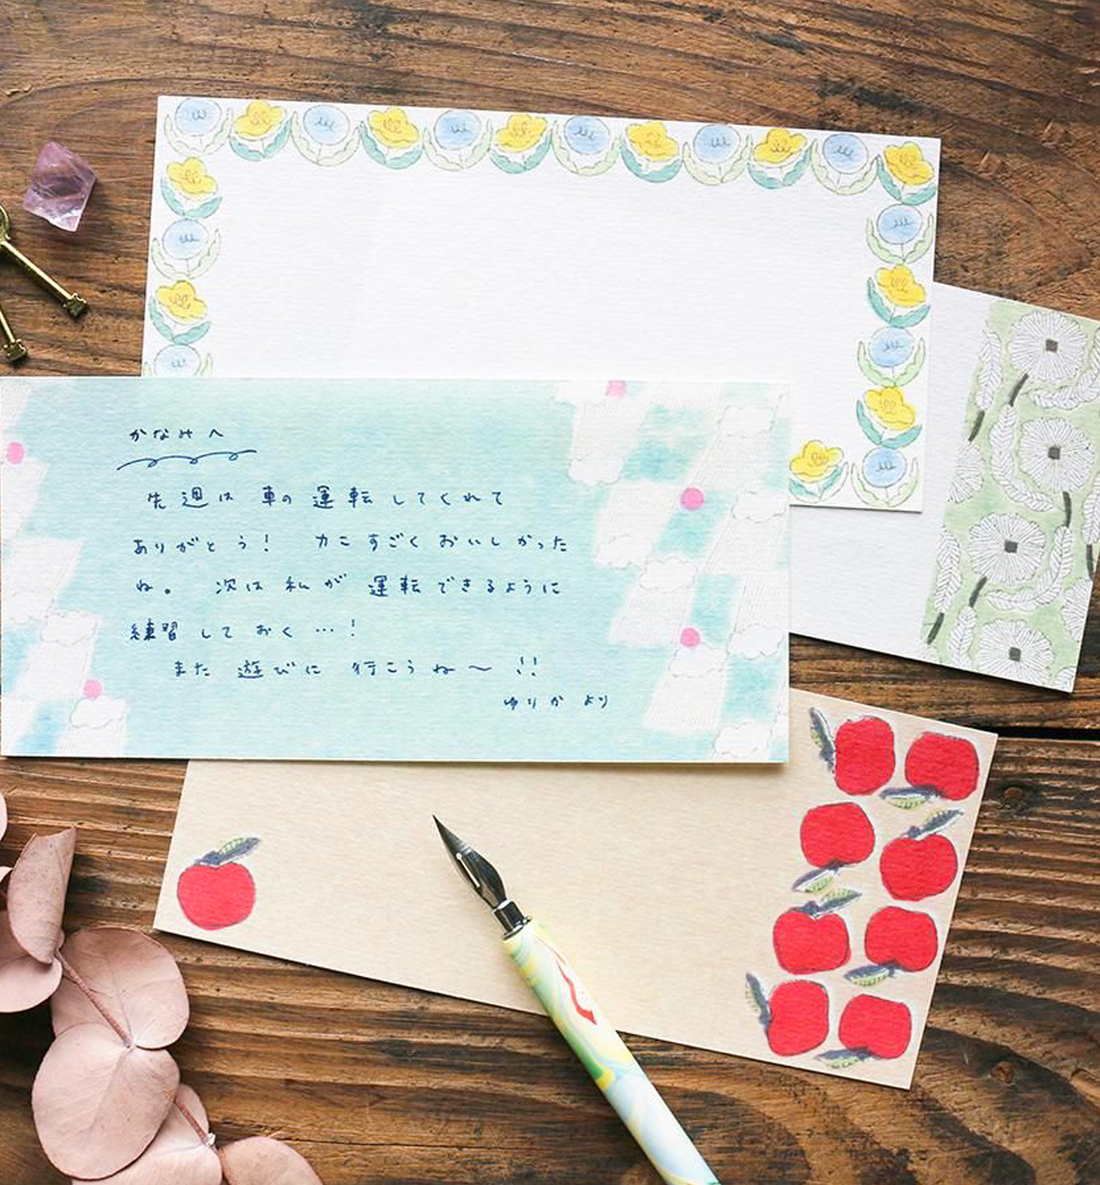 かなみへ
先週は 車の 運転 してくれて
ありがとう! カニ すごく おいしかった
ね。 次は 私が 運転できるように
練習 して おく …!
また 遊びに 行こうね〜 !!
ゆりか より